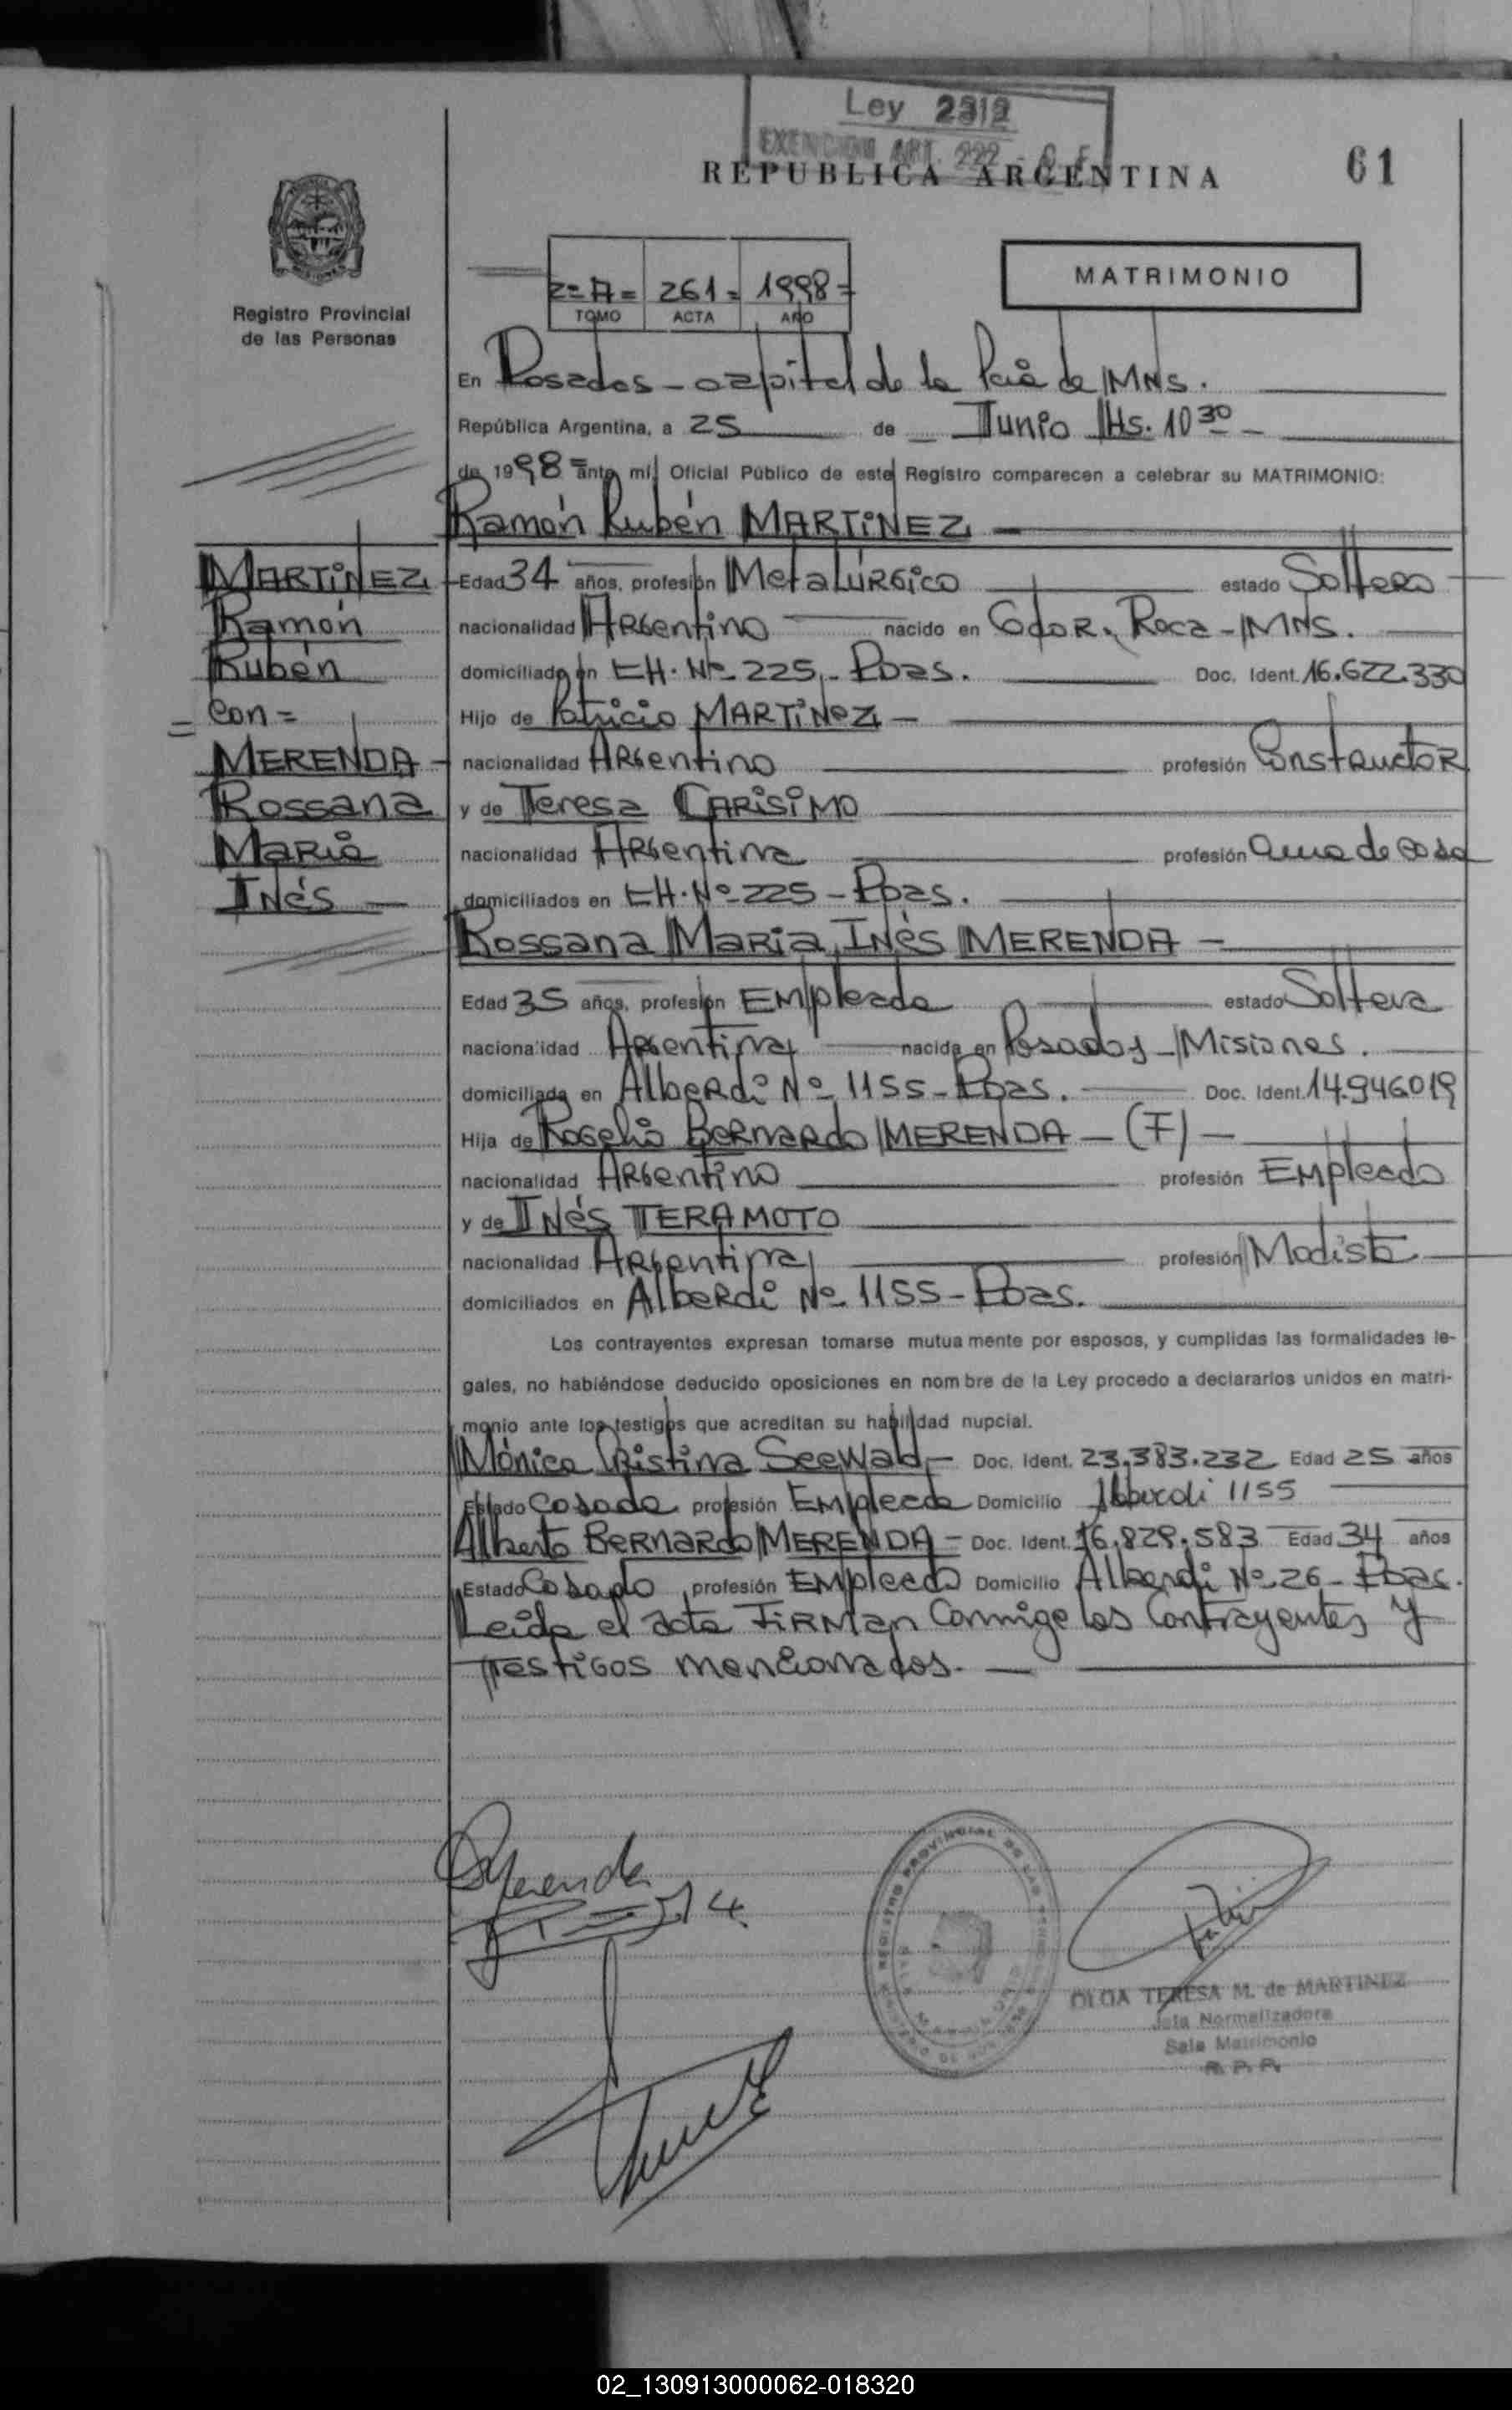 Ley 2312
EXENCION ART. 222 - C.F.
REPUBLICA ARGENTINA
61
Registro Provincial
de las Personas
2=A= 261= 1998=
TOMO ACTA AÑO
MATRIMONIO
En Posadas - capital de la Pcia de MNS.
República Argentina, a 25 de Junio Hs. 10 30 -
de 1998 = ante mí Oficial Público de este Registro comparecen a celebrar su MATRIMONIO:
Ramón Rubén MARTINEZ -
MARTINEZ
Ramón
Rubén
= con =
MERENDA -
Rossana
María
Inés -
Edad 34 años, profesión Metalúrgico estado Soltero
nacionalidad Argentino nacido en Gdor. Roca - MNS.
domiciliado en CH. Nº 225 - Pdas. Doc. Ident. 16.622.330
Hijo de Patricio MARTINEZ -
nacionalidad Argentino profesión Constructor
y de Teresa CARISIMO
nacionalidad Argentina profesión ama de casa
domiciliados en CH. Nº 225 - Pdas.
Rossana María Inés MERENDA -
Edad 35 años, profesión Empleada estado Soltera
nacionalidad Argentina nacida en Posadas - Misiones.
domiciliada en Alberdi Nº 1155 - Pdas. Doc. Ident. 14.946.019
Hija de Rogelio Bernardo MERENDA - (F) -
nacionalidad Argentino profesión Empleado
y de Inés TERAMOTO
nacionalidad Argentina profesión Modista
domiciliados en Alberdi Nº 1155 - Pdas.
Los contrayentes expresan tomarse mutua mente por esposos, y cumplidas las formalidades le-
gales, no habiéndose deducido oposiciones en nom bre de la Ley procedo a declararlos unidos en matri-
monio ante los testigos que acreditan su habilidad nupcial.
Mónica Cristina Seewald - Doc. Ident. 23.383.232 Edad 25 años
Estado Casada profesión Empleada Domicilio Alberdi 1155
Alberto Bernardo MERENDA - Doc. Ident. 16.829.583 Edad 34 años
Estado Casado profesión Empleado Domicilio Alberdi Nº 26 - Pdas.
Leída el acta FIRMAN Conmigo los Contrayentes y
Testigos mencionados. -
Merenda
REGISTRO PROVINCIAL DE LAS PERSONAS
OLGA TERESA M. de MARTINEZ
Jefa Normalizadora
Sala Matrimonio
R. P. P.
02_130913000062-018320